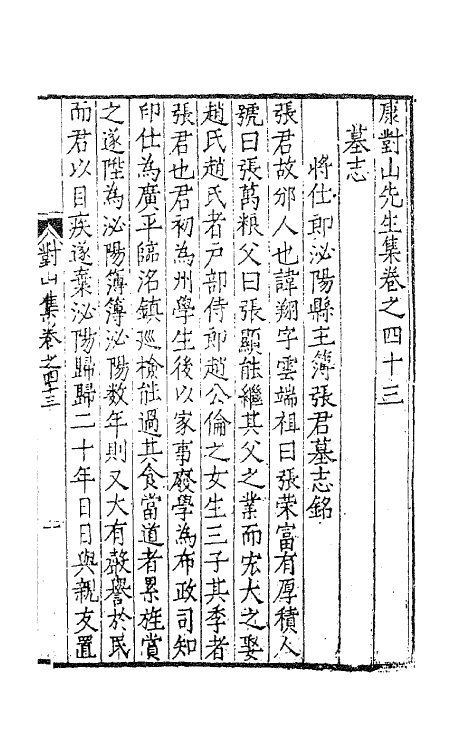 康對山先生集卷之四十三
墓志
將仕郎泌陽縣主簿張君墓志銘
張君故邠人也諱翔字雲端祖曰張荣富有厚積人
號曰張萬粮父曰張顯能繼其父之業而宏大之娶
趙氏趙氏者户部侍郎趙公倫之女生三子其季者
張君也君初為州學生後以家事廢學為布政司知
印仕為廣平臨洺鎮廵檢能過其食當道者累旌賞
之遂陞為泌陽簿簿泌陽数年則又大有聲譽於民
而君以目疾遂棄泌陽歸歸二十年日日與親友置
對山集卷之四十三
一